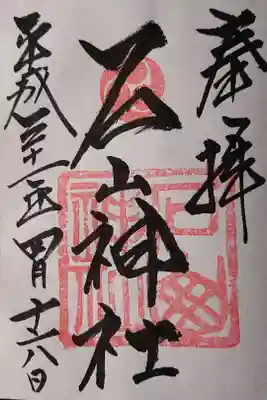 奉拝
石山神社
平成二十一年四月十六日